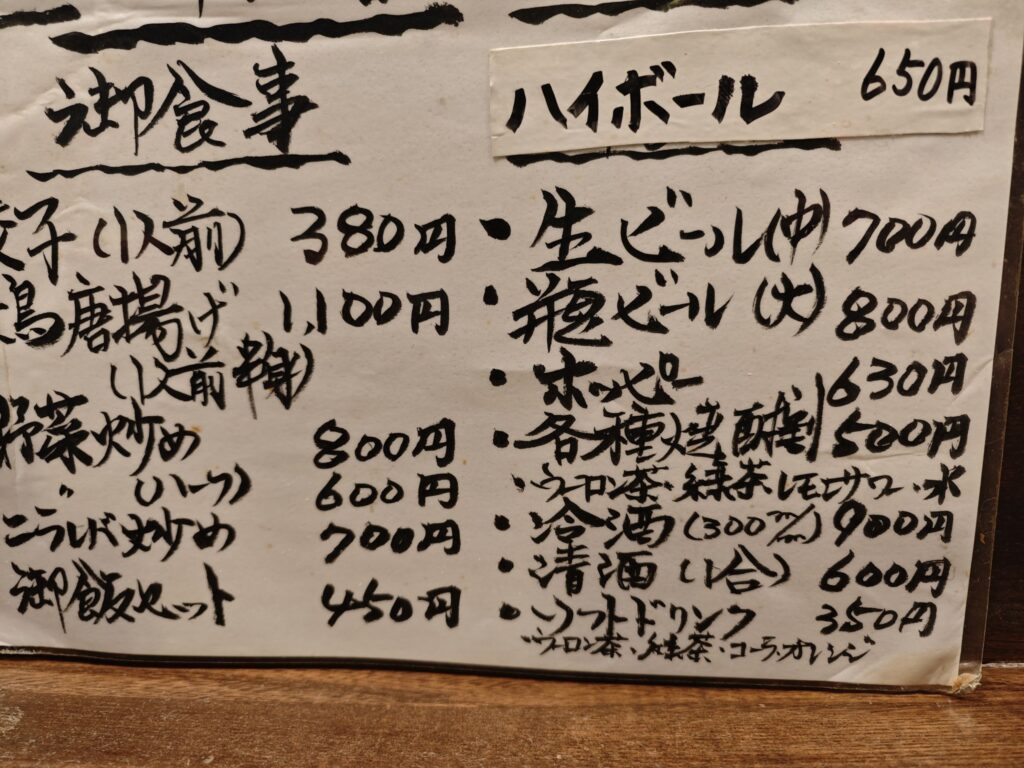 御食事
子(1人前) 380円
鳥唐揚げ 1,100円
(1人前
野菜炒め 800円
〃 (ハーフ) 600円
ニラレバ炒め 700円
御飯セット 450円
ハイボール 650円
・生ビール(中) 700円
・瓶ビール(大) 800円
・ホッピー 630円
・各種焼酎割 500円
・ウーロン茶・緑茶・レモンサワー・水
・冷酒(300m/m) 900円
・清酒(1合) 600円
・ソフトドリンク 350円
・ウーロン茶・緑茶・コーラ・オレンジ